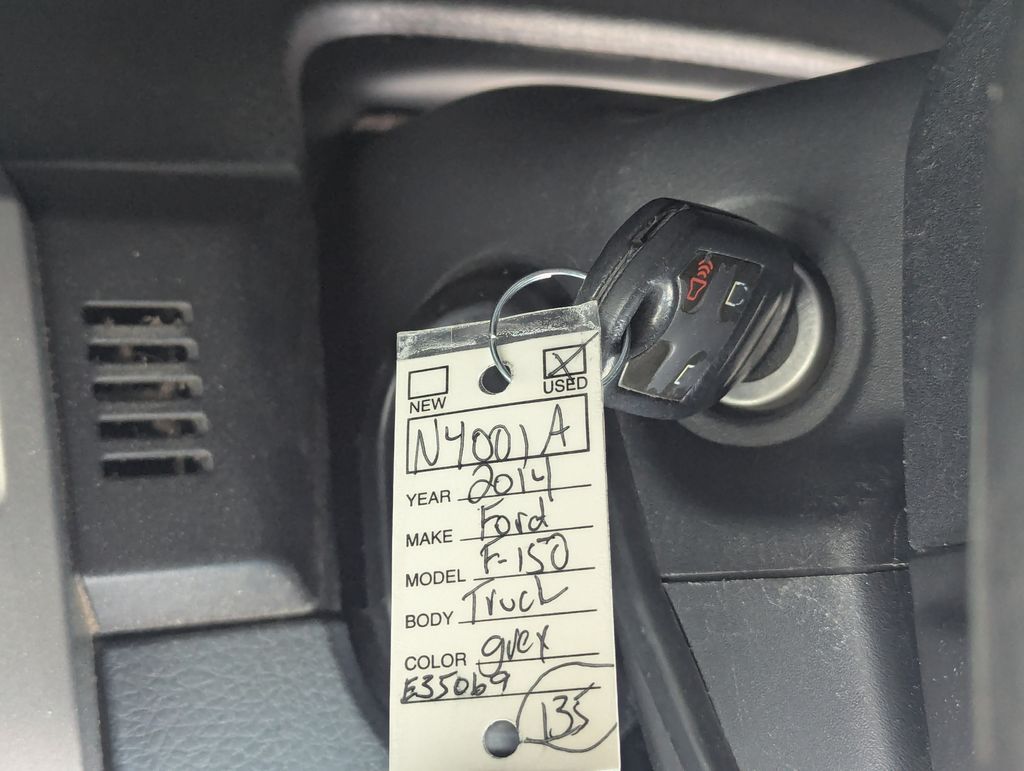 NEW USED
N4001A
YEAR 2014
MAKE Ford
MODEL F-150
BODY Truck
COLOR grey
E35069
135